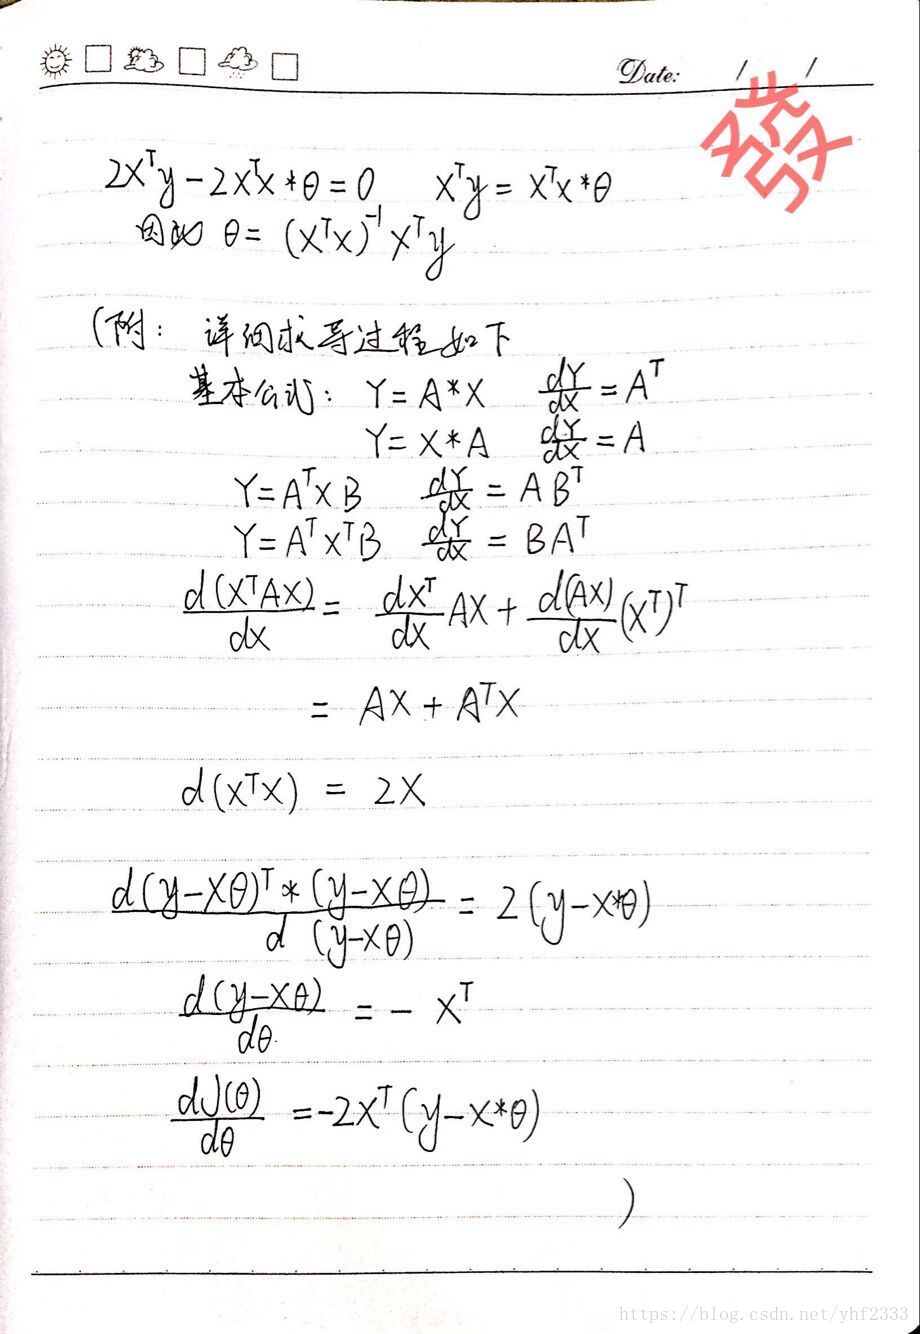 Date: / /
發
2X^T y - 2X^T X * θ = 0 X^T y = X^T X * θ
因此 θ = (X^T X)^-1 X^T y
(附: 详细求导过程如下
基本公式: Y = A * X dY/dX = A^T
Y = X * A dY/dX = A
Y = A^T X B dY/dX = A B^T
Y = A^T X^T B dY/dX = B A^T
d(X^T A X)/dX = dX^T/dX AX + d(AX)/dX (X^T)^T
= AX + A^T X
d(X^T X) = 2X
d(y-Xθ)^T * (y-Xθ)/d (y-Xθ) = 2(y-X*θ)
d(y-Xθ)/dθ = - X^T
dJ(θ)/dθ = -2X^T (y-X*θ)
)
https://blog.csdn.net/yhf2333